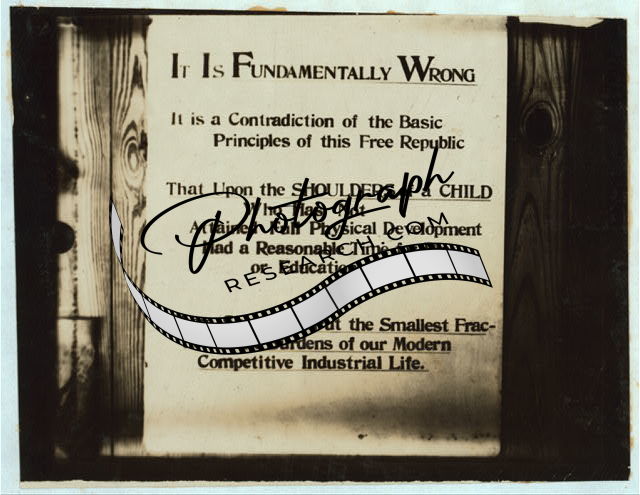 IT IS FUNDAMENTALLY WRONG
It is a Contradiction of the Basic
Principles of this Free Republic
That Upon the SHOULDERS a CHILD
Attained Full Physical Development
Had a Reasonable Time
or Education
the Smallest Frac-
of our Modern
Competitive Industrial Life.
Photograph
RESEARCH.COM